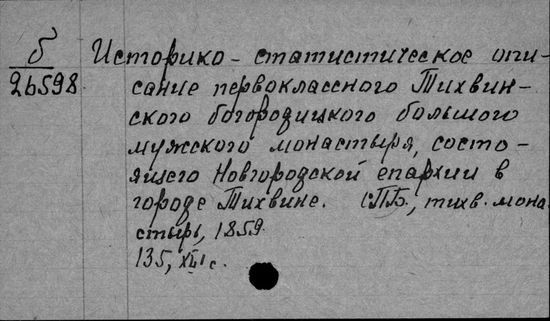 б
26598
Историко-статистическое опи-
сание первоклассного Тихвин-
ского богородицкого большого
мужского монастыря, состо-
ящего Новгородской епархии в
городе Тихвине. СПБ., тихв. мона-
стырь, 1859.
135, XII с.